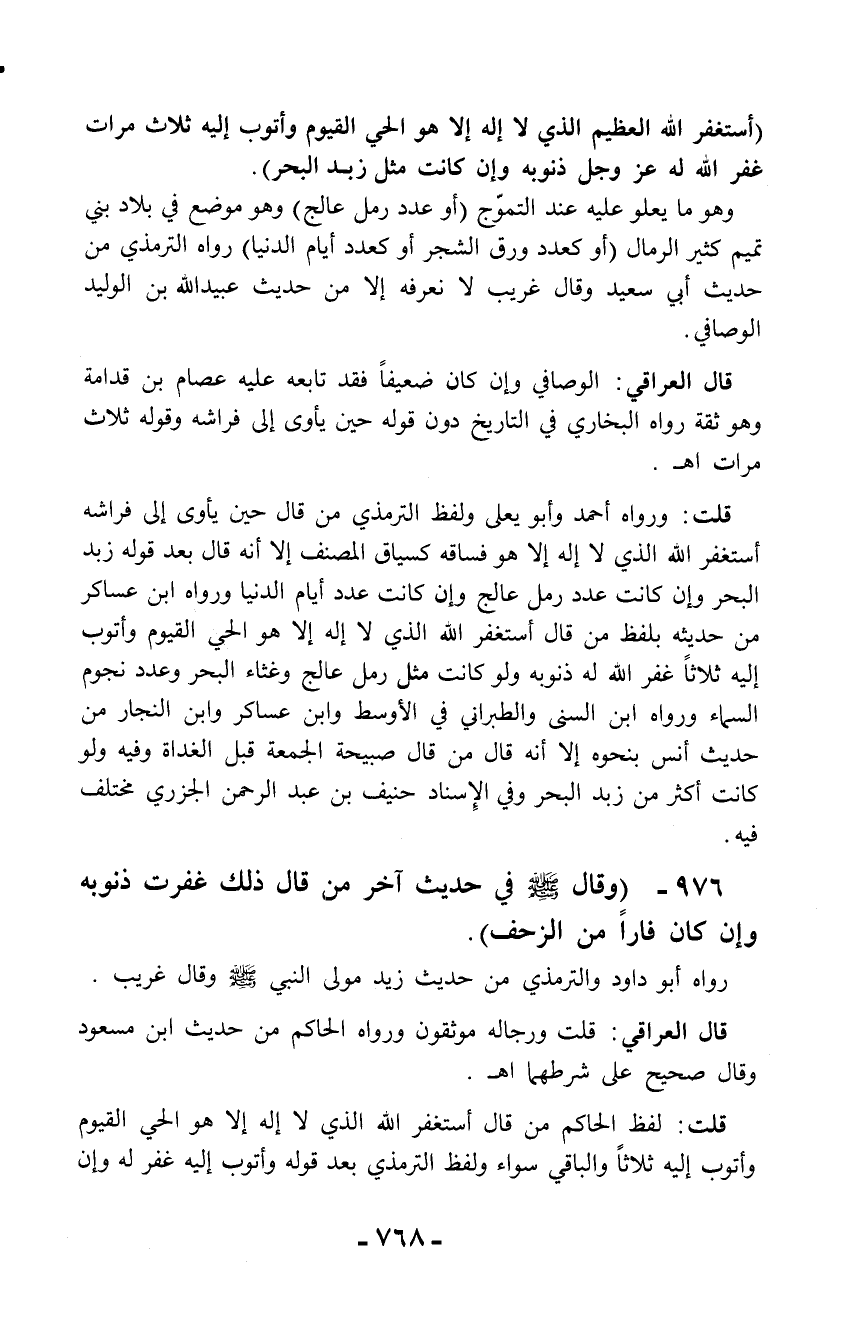 (أستغفر الله العظيم الذي لا إله إلا هو الحي القيوم وأتوب إليه ثلاث مرات
غفر الله له عز وجل ذنوبه وإن كانت مثل زبد البحر).
وهو ما يعلو عليه عند التموّج (أو عدد رمل عالج) وهو موضع في بلاد بني
تميم كثير الرمال (أو كعدد ورق الشجر أو كعدد أيام الدنيا) رواه الترمذي من
حديث أبي سعيد وقال غريب لا نعرفه إلا من حديث عبيدالله بن الوليد
الوصافي.
قال العراقي: الوصافي وإن كان ضعيفاً فقد تابعه عليه عصام بن قدامة
وهو ثقة رواه البخاري في التاريخ دون قوله حين يأوى إلى فراشه وقوله ثلاث
مرات اهـ .
قلت: ورواه أحمد وأبو يعلى ولفظ الترمذي من قال حين يأوى إلى فراشه
أستغفر الله الذي لا إله إلا هو فساقه كسياق المصنف إلا أنه قال بعد قوله زبد
البحر وإن كانت عدد رمل عالج وإن كانت عدد أيام الدنيا ورواه ابن عساكر
من حديثه بلفظ من قال أستغفر الله الذي لا إله إلا هو الحي القيوم وأتوب
إليه ثلاثاً غفر الله له ذنوبه ولو كانت مثل رمل عالج وغثاء البحر وعدد نجوم
السماء ورواه ابن السنى والطبراني في الأوسط وابن عساكر وابن النجار من
حديث أنس بنحوه إلا أنه قال من قال صبيحة الجمعة قبل الغداة وفيه ولو
كانت أكثر من زبد البحر وفي الإسناد حنيف بن عبد الرحمن الجزري مختلف
فيه.
٩٧٦ - (وقال ﷺ في حديث آخر من قال ذلك غفرت ذنوبه
وإن كان فاراً من الزحف).
رواه أبو داود والترمذي من حديث زيد مولى النبي ﷺ وقال غريب .
قال العراقي: قلت ورجاله موثقون ورواه الحاكم من حديث ابن مسعود
وقال صحيح على شرطهما اهـ .
قلت: لفظ الحاكم من قال أستغفر الله الذي لا إله إلا هو الحي القيوم
وأتوب إليه ثلاثاً والباقي سواء ولفظ الترمذي بعد قوله وأتوب إليه غفر له وإن
- ٧٦٨ -